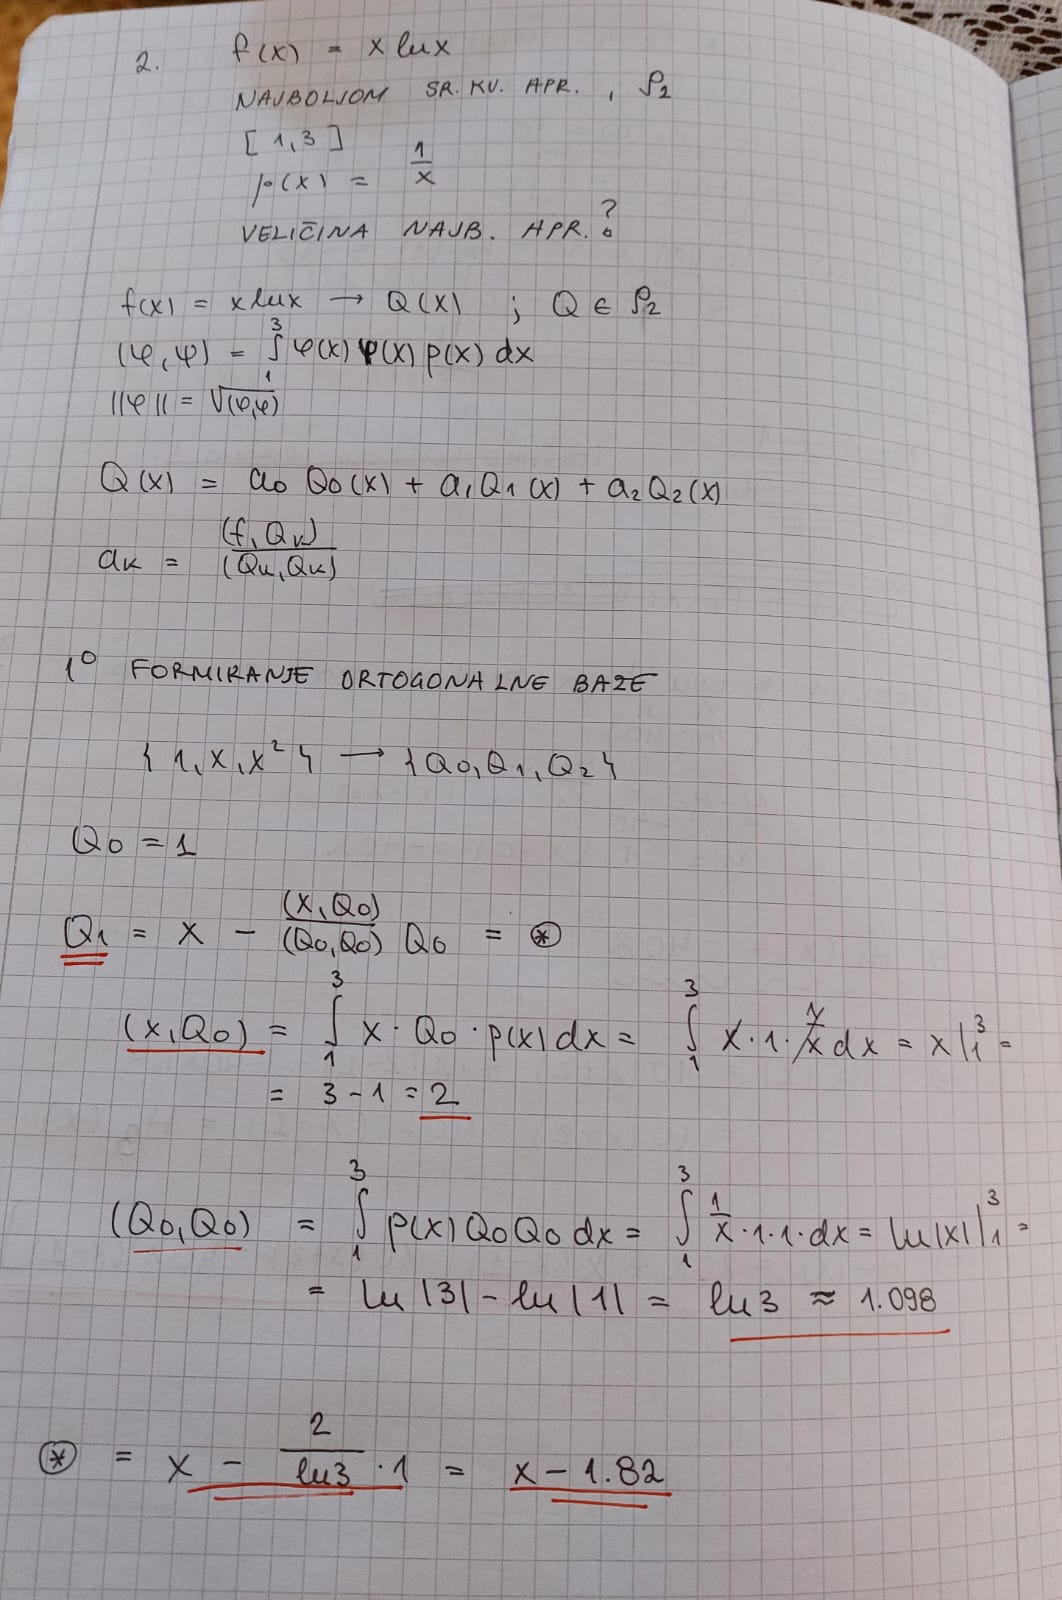 2. f(x) = x lnx
NAJBOLJOM SR. KV. APR. , P₂
[1,3]
p(x) = 1/x
VELIČINA NAJB. APR. ?
f(x) = x lnx → Q(x) ; Q ∈ P₂
(φ,ψ) = ∫₁³ φ(x) ψ(x) p(x) dx
||φ|| = √(φ,φ)
Q(x) = a₀ Q₀(x) + a₁Q₁(x) + a₂Q₂(x)
aₖ = (f,Qₖ)/(Qₖ,Qₖ)
1° FORMIRANJE ORTOGONALNE BAZE
{1,x,x²} → {Q₀,Q₁,Q₂}
Q₀ = 1
Q₁ = x - (x,Q₀)/(Q₀,Q₀) Q₀ = ⊛
(x,Q₀) = ∫₁³ x · Q₀ · p(x) dx = ∫₁³ x · 1 · 1/x dx = x|₁³ =
= 3 - 1 = 2
(Q₀,Q₀) = ∫₁³ p(x) Q₀ Q₀ dx = ∫₁³ 1/x · 1 · 1 · dx = ln|x| |₁³ =
= ln|3| - ln|1| = ln3 ≈ 1.098
⊛ = x - 2/ln3 · 1 = x - 1.82